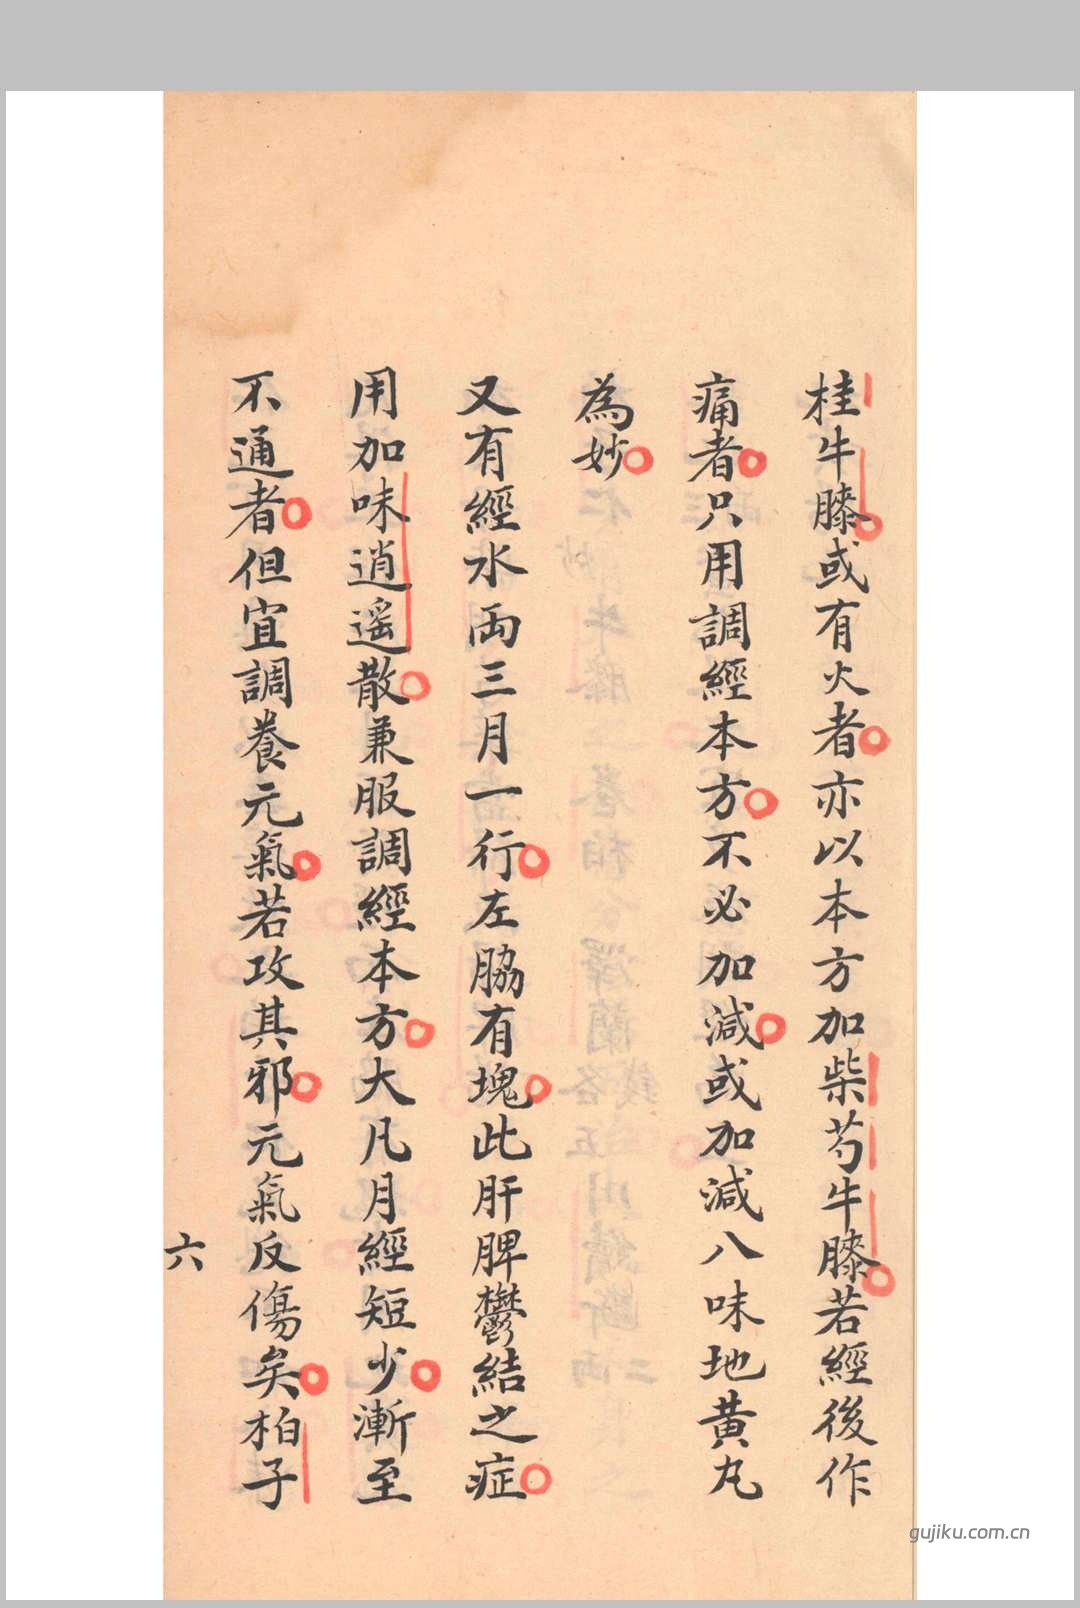 桂牛膝或有火者亦以本方加柴芍牛膝若經後作
痛者只用調經本方不必加減或加減八味地黃丸
為妙
又有經水両三月一行左脇有塊此肝脾鬱結之症
用加味逍遙散兼服調經本方大凡月經短少漸至
不通者但宜調養元氣若攻其邪元氣反傷矣柏子
六
gujiku.com.cn